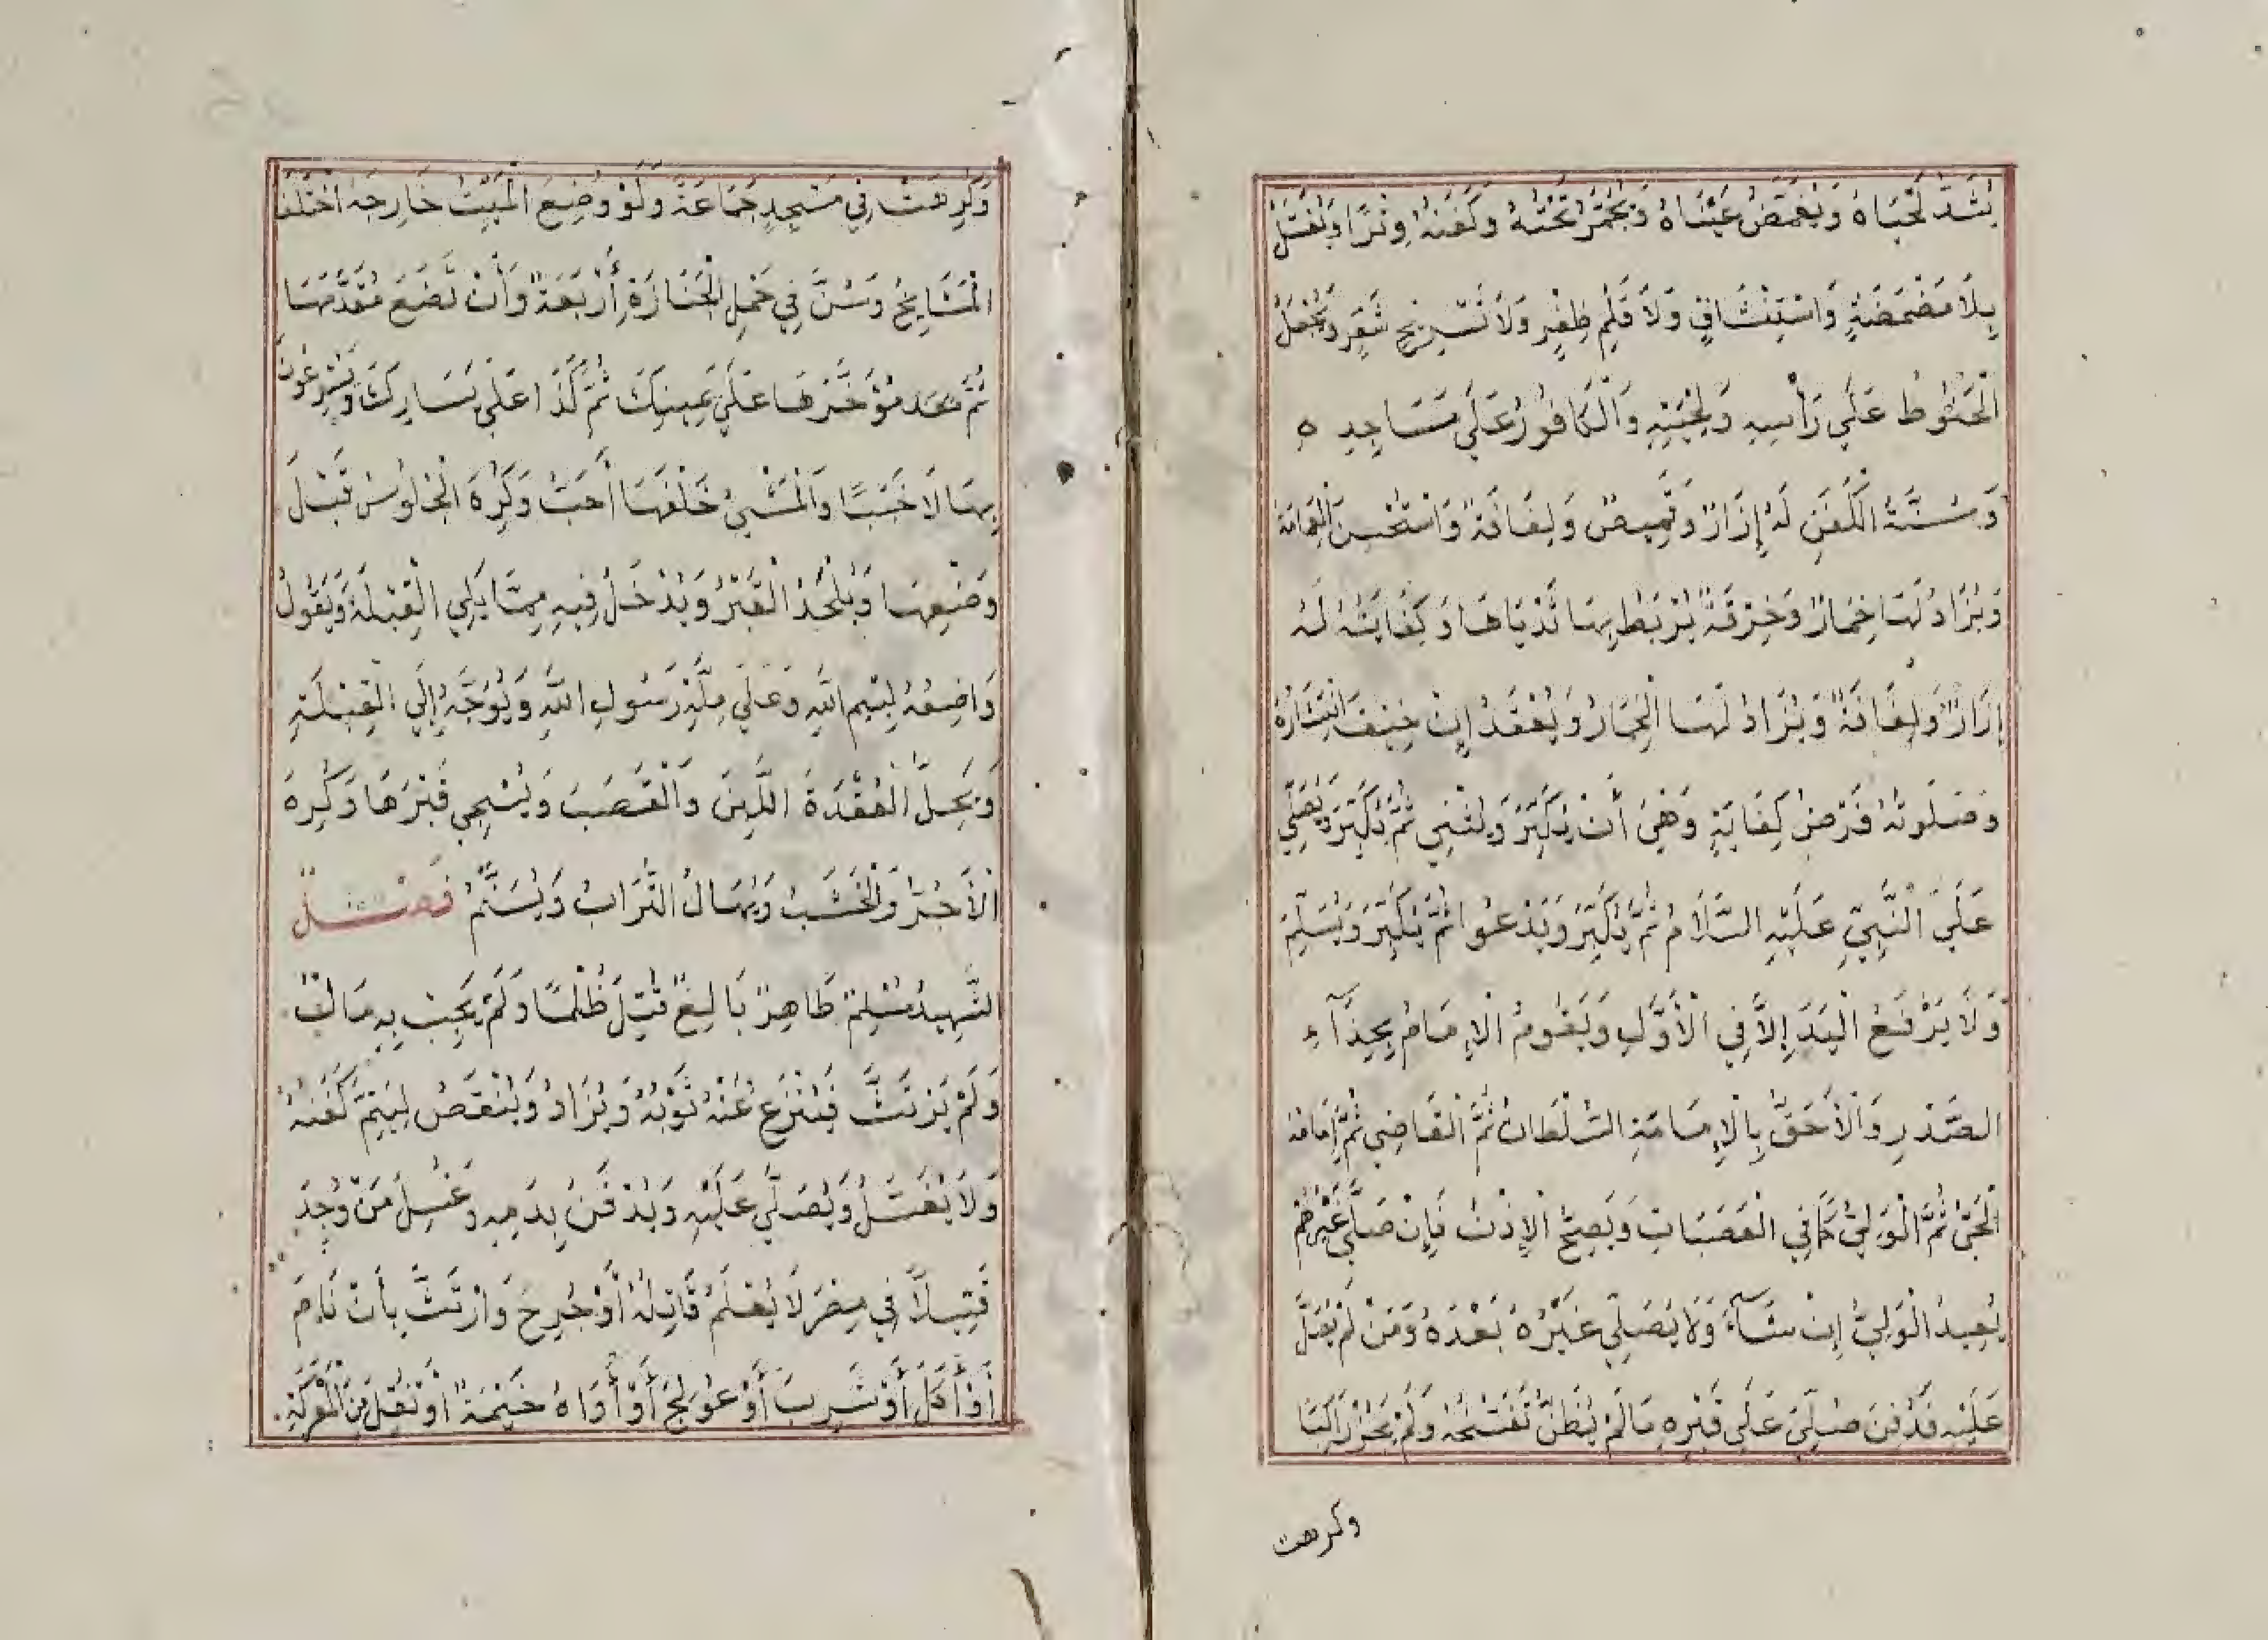 يُشَدُّ لَحْيَاهُ وَيُغَمَّضُ عَيْنَاهُ وَيُجَمَّرُ تَخْتُهُ وَكَفَنُهُ وِتْرًا وَيُغْسَلُ
بِلَا مَضْمَضَةٍ وَاسْتِنْشَاقٍ وَلَا قَلْمِ ظُفْرٍ وَلَا تَسْرِيحِ شَعَرٍ وَيُجْعَلُ
الْحَنُوطُ عَلَى رَأْسِهِ وَلِحْيَتِهِ وَالْكَافُورُ عَلَى مَسَاجِدِهِ
وَسُنَّةُ الْكَفَنِ لَهُ إِزَارٌ وَقَمِيصٌ وَلِفَافَةٌ وَاسْتُحْسِنَ الْعِمَامَةُ
وَيُزَادُ لَهَا خِمَارٌ وَخِرْقَةٌ يُرْبَطُ بِهَا ثَدْيَاهَا وَكِفَايَتُهُ لَهُ
إِزَارٌ وَلِفَافَةٌ وَيُزَادُ لَهَا الْخِمَارُ وَيُعْقَدُ إِنْ خِيفَ انْتِشَارُهُ
وَصَلَوتُهُ فَرْضُ كِفَايَةٍ وَهْيَ أَنْ يُكَبِّرَ وَيُثْنِي ثُمَّ يُكَبِّرَ وَيُصَلِّي
عَلَى النَّبِيِّ عَلَيْهِ السَّلَامُ ثُمَّ يُكَبِّرَ وَيَدْعُوا ثُمَّ يُكَبِّرَ وَيُسَلِّمَ
وَلَا يَرْفَعُ الْيَدَ إِلَّا فِي الْأَوَّلِ وَيَقُومُ الْإِمَامُ بِحِذَآءِ
الصَّدْرِ وَالْأَحَقُّ بِالْإِمَامَةِ السُّلْطَانُ ثُمَّ الْقَاضِي ثُمَّ إِمَامُ
الْحَيِّ ثُمَّ الْوَلِيُّ كَمَا فِي الْعَصَبَاتِ وَيَصِحُّ الْإِذْنُ فَإِنْ صَلَّى غَيْرُهُمْ
يُعِيدُ الْوَلِيُّ إِنْ شَآءَ وَلَا يُصَلِّي غَيْرُهُ بَعْدَهُ وَمَنْ لَمْ يُصَلَّ
عَلَيْهِ فَدُفِنَ صُلِّيَ عَلَى قَبْرِهِ مَا لَمْ يُظَنَّ تَفَسُّخُهُ وَلَمْ يَجُزْ رَاكِبًا
وكرهت
وَكُرِهَتْ فِي مَسْجِدِ جَمَاعَةٍ وَلَوْ وُضِعَ الْمَيِّتُ خَارِجَهُ اخْتَلَفَ
الْمَشَايِخُ وَسُنَّ فِي حَمْلِ الْجَنَازَةِ أَرْبَعَةٌ وَأَنْ تَضَعَ مُقَدَّمَهَا
ثُمَّ مُؤَخَّرَهَا عَلَى يَمِينِكَ ثُمَّ كَذَا عَلَى يَسَارِكَ وَيُسْرِعُونَ
بِهَا لَا خَبَبًا وَالْمَشْيُ خَلْفَهَا أَحَبُّ وَكُرِهَ الْجُلُوسُ قَبْلَ
وَضْعِهَا وَيُلْحَدُ الْقَبْرُ وَيُدْخَلُ فِيهِ مِمَّا يَلِي الْقِبْلَةَ وَيَقُولُ
وَاضِعُهُ بِسْمِ اللَّهِ وَعَلَى مِلَّةِ رَسُولِ اللَّهِ وَيُوَجَّهُ إِلَى الْقِبْلَةِ
وَيُحَلُّ الْعُقْدَةَ اللَّبِنَ وَالْقَصَبَ وَيُسَجَّى قَبْرَهَا وَكُرِهَ
الْأَجُرُّ وَالْخَشَبُ وَيُهَالُ التُّرَابُ وَيُسَنَّمُ فَصْلٌ
الشَّهِيدُ مُسْلِمٌ طَاهِرٌ بَالِغٌ قُتِلَ ظُلْمًا وَلَمْ يَجِبْ بِهِ مَالٌ
وَلَمْ يَرْتَثَّ فَيُنْزَعُ عَنْهُ ثَوْبُهُ وَيُزَادُ وَيُنْقَصُ لِيَتِمَّ كَفَنُهُ
وَلَا يُغْسَلُ وَيُصَلَّى عَلَيْهِ وَيُدْفَنُ بِدَمِهِ وَغُسِلَ مَنْ وُجِدَ
قَتِيلًا فِي مِصْرَ لَا يُعْلَمُ قَاتِلُهُ أَوْ جُرِحَ وَارْتَثَّ بِأَنْ نَامَ
أَوْ أَكَلَ أَوْ شَرِبَ أَوْ عُولِجَ أَوْ أَوَاهُ خَيْمَةٌ أَوْ نُقِلَ مِنَ الْمَعْرَكَةِ